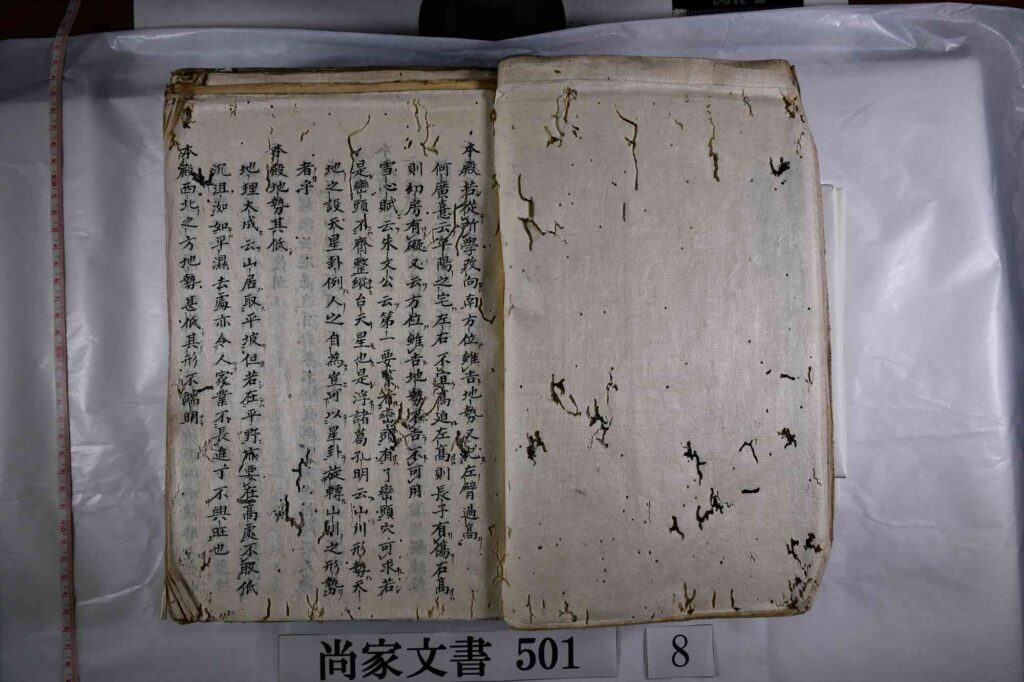 本殿若從所學改向南方位雖吉地勢又犯左臂過高
何廣意云平陽之宅左右不宜高迫左高則長子有傷右高
則幼房有礙又云方位雖吉地勢不吉不可用
雪心賦云朱文公云第一要緊看巒頭有了巒頭穴可求若
是巒頭不齊整縱台天星也是浮諸葛孔明云山川形勢天
地之設天星卦例人之自為豈可以星卦旋轉山川之形勢
者乎
本殿地勢甚低
地理大成云山居取平坡但若在平野亦要在高處不取低
沉沮洳如平濕去處亦令人家業不長進丁不興旺也
本殿西北之方地勢甚低其形不歸明
尚家文書 501
8